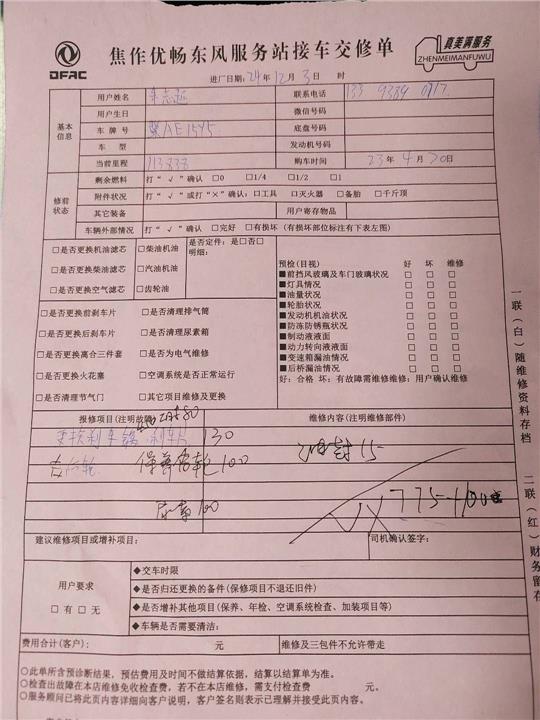 DFAC
焦作优畅东风服务站接车交修单
真美满服务
ZHENMEIMANFUWU
进厂日期：24年12月3日 时
基本信息
用户姓名
联系电话
用户生日
微信号码
车 牌 号
底盘号码
车 型
发动机号码
当前里程 113838
购车时间 23年4月20日
修前状态
剩余燃料 打“√”确认 □0 □1/4 □1/2 □1
附件状况 打“√”或打“×”确认：□工具 □灭火器 □备胎 □千斤顶
其它装备
用户寄存物品
车辆外部情况 打“√”确认 □完好 □有损坏（有损坏部位标注有下表左图）
□是否更换机油滤芯 □柴油机油
□是否更换柴油滤芯 □汽油机油
□是否更换空气滤芯 □齿轮油
是否定件：是□否□
明细：
□是否更换前刹车片 □是否清理排气筒
□是否更换后刹车片 □是否清理尿素箱
□是否更换离合三件套 □是否为电气维修
□是否更换火花塞 □空调系统是否正常运行
□是否清理节气门 □其它项目维修及更换
预检(目视) 好 坏 维修
■前挡风玻璃及车门玻璃状况 □ □ □
■灯具情况 □ □ □
■油量状况 □ □ □
■轮胎状况 □ □ □
■发动机机油状况 □ □ □
■防冻防锈瓶状况 □ □ □
■制动液液面 □ □ □
■动力转向液液面 □ □ □
■变速箱漏油情况 □ □ □
■后桥漏油情况 □ □ □
好：合格 坏：有故障需维修维修：用户确认维修
报修项目(注明故障)
维修内容(注明维修部件)
130
油封 15
100
100
775
建议维修项目或增补项目：
司机确认签字：
用户要求
□有 □无
◆交车时限
◆是否归还更换的备件(保修项目不退还旧件)
◆是否增补其他项目(保养、年检、空调系统检查、加装项目等)
◆车辆是否需要清洁：
费用合计(客户)： 元
维修及三包件不允许带走
○此单所含预诊断结果，预估费用及时间不做结算依据，结算以结算单为准。
○检查出故障在本店维修免收检查费，若不在本店维修，需支付检查费 元。
○服务顾问已将此页内容详细向客户说明，客户签名则表示已理解并接受此页内容。
一联（白）随维修资料存档
二联（红）财务留存